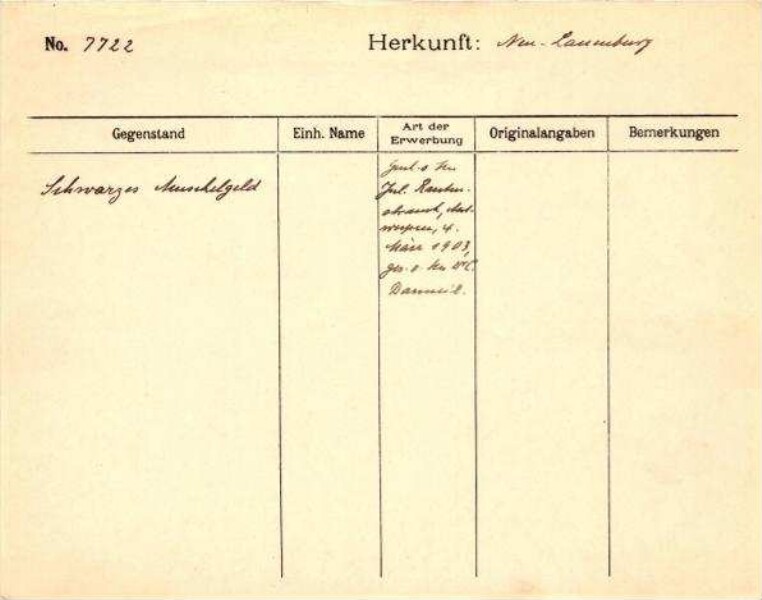 No. 7722
Herkunft: Neu-Lauenburg
Gegenstand
Einh. Name
Art der Erwerbung
Originalangaben
Bemerkungen
Schwarzes Muschelgeld
Jul. Rauten-
strauch, Ant-
werpen, 4.
März 1903,